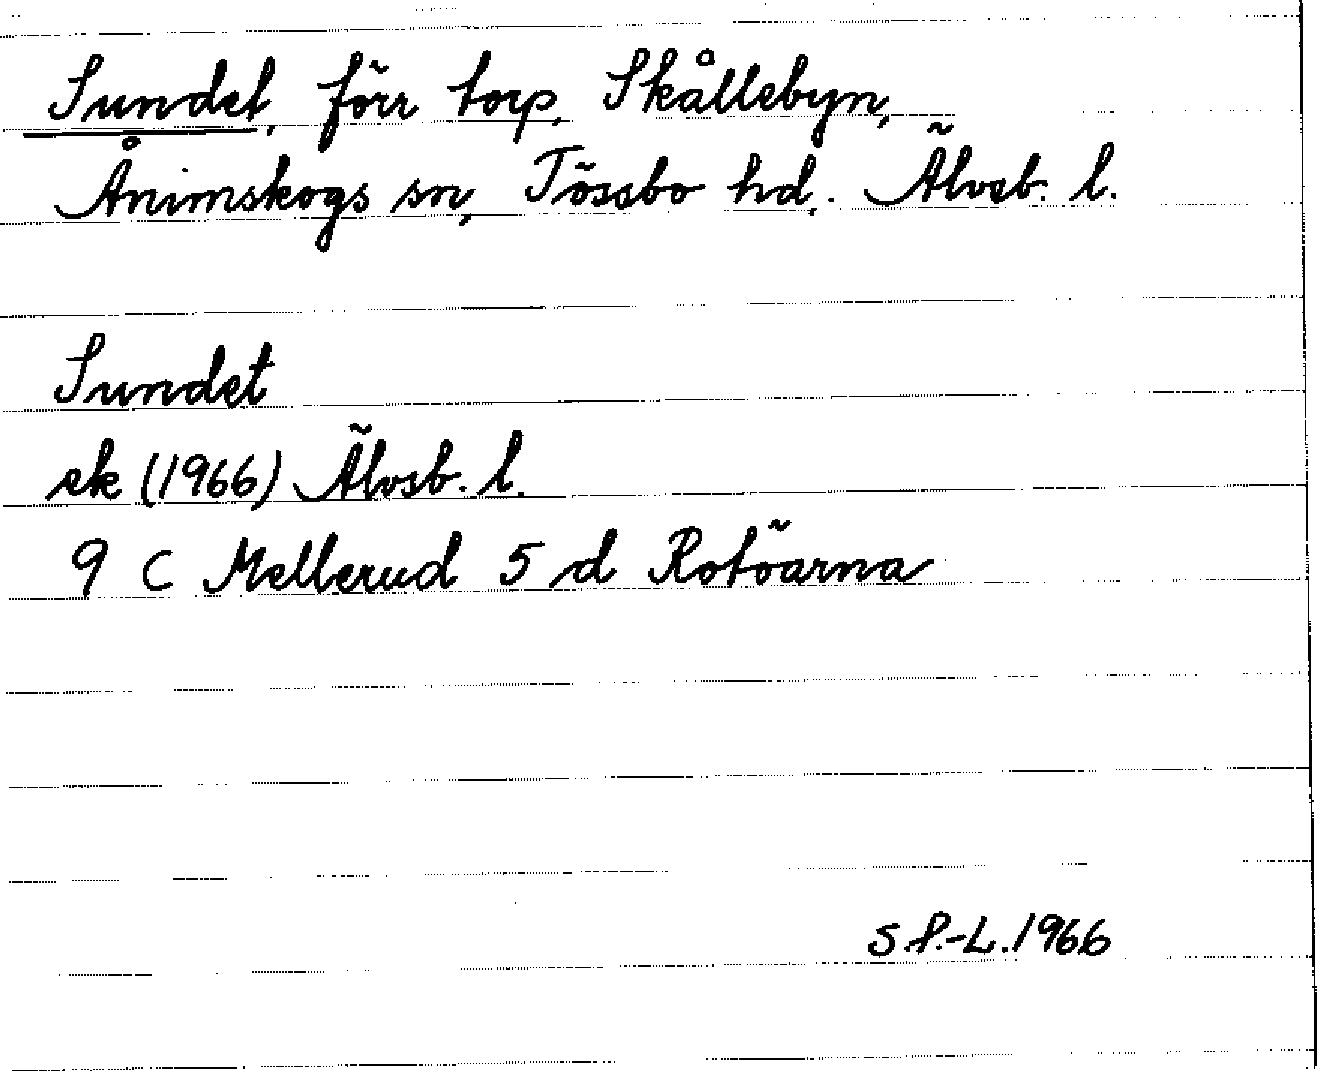 Sundet, förr torp, Skållebyn,
Ånimskogs sn, Tössbo hd. Älvsb. l.
Sundet
ek (1966) Älvsb. l.
9 C Mellerud 5 d Rotöarna
S.P.-L. 1966